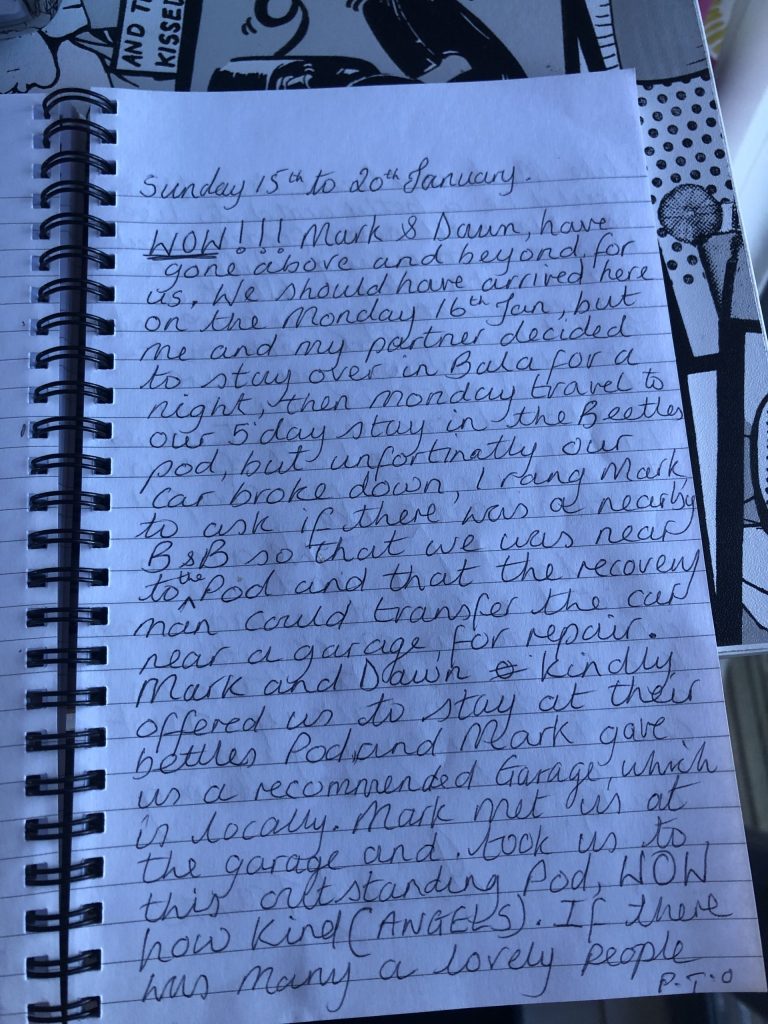 AND T
KISSED
Sunday 15th to 20th January.
WOW!!! Mark & Dawn, have
gone above and beyond, for
us. We should have arrived here
on the Monday 16th Jan, but
me and my partner decided
to stay over in Bala for a
night, then monday travel to
our 5 day stay in the Beetles
pod, but unfortinatly our
car broke down, I rang Mark,
to ask if there was a nearby
B&B so that we was near
to the Pod and that the recovery
man could transfer the car
near a garage, for repair.
Mark and Dawn kindly
offered us to stay at their
bettles Pod, and Mark gave
us a recommended Garage, which
is locally. Mark met us at
the garage and. took us to
this outstanding Pod, WOW
how kind (ANGELS). If there
was many a lovely people
P.T.O